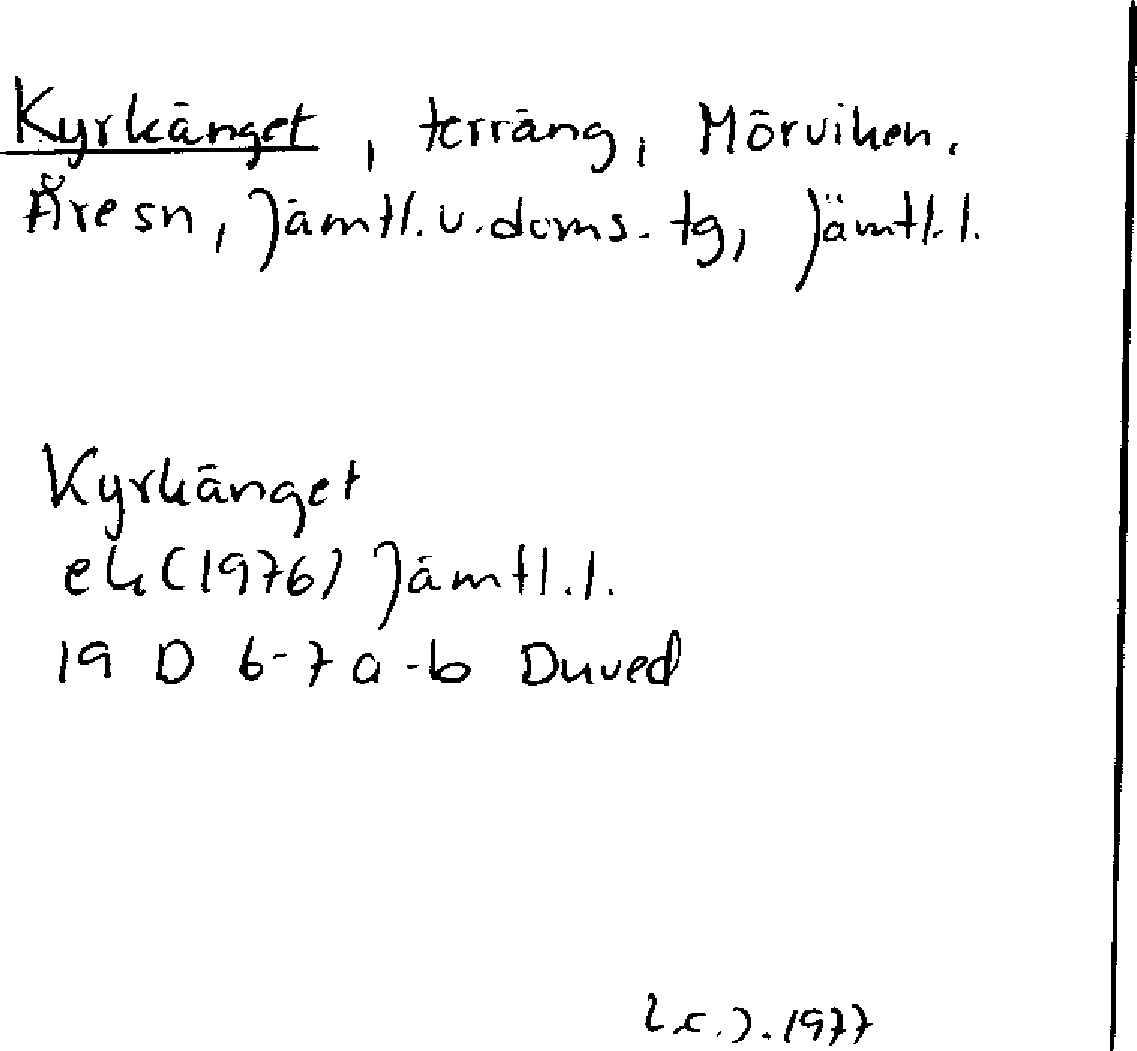 Kyrkänget, terräng, Mörviken.
Åre sn, Jämtl. v. doms. tg, Jämtl. l.
Kyrkänget
ek (1976) Jämtl. l.
19 D 6-7 a-b Duved
1977